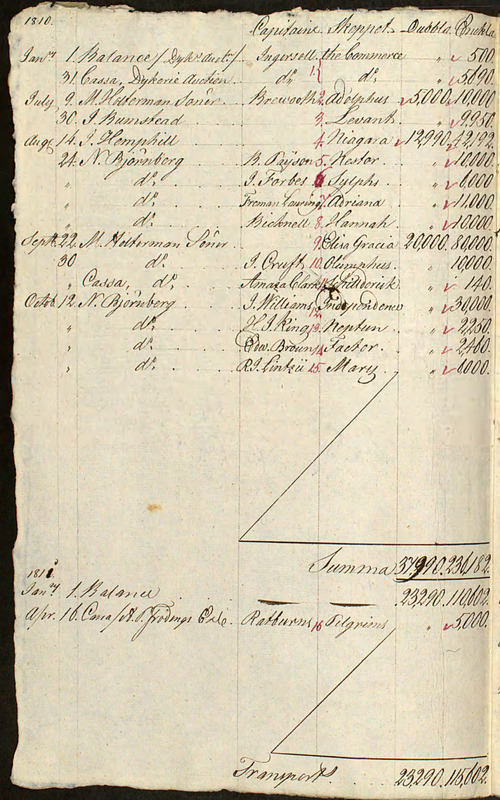 1810.
Capitaine. Skeppet. Dubbla. Enckla
Janry 1. Balance / Dyke Auct: / Ingersell. the Commerce " 500
31. Cassa, Dykerie Auction do 1. do " 3,690
July 9. M. Holterman Söner Breworth 2. Adolphus 5,000. 10,000
30. J. Bumstead 3. Levant " 9950
Aug 14. J. Hemphill 4. Niagara 12,990. 42,192
24. N. Björnberg B. Payson 5. Hestor " 10,000
" do J. Forbes 6 Sylphs " 8,000
" do Freman 7 Adriana " 11,000
" do Bicknell 8. Hannah " 10,000
Sept: 22. M. Holterman Söner 9. Gracia 20,000. 80,000
30 do J. Cruft 10. Olumphus 10,000
" Cassa, do Amaza Clark " 140
Octob: 12. N. Björnberg J. Williams 12 Independence " 30,000
" do King 13. Neptun " 2,250
" do Edw. Broun 14 Factor " 2,460
" do R. J. 15. Mary " 6000
Summa 37,990. 236,182
1811.
Janry 1. Balance 23,290. 110,602
Apr. 16. Cassa Ratburns 16 Pilgrims " 5,000
Transport 23,290. 115,602